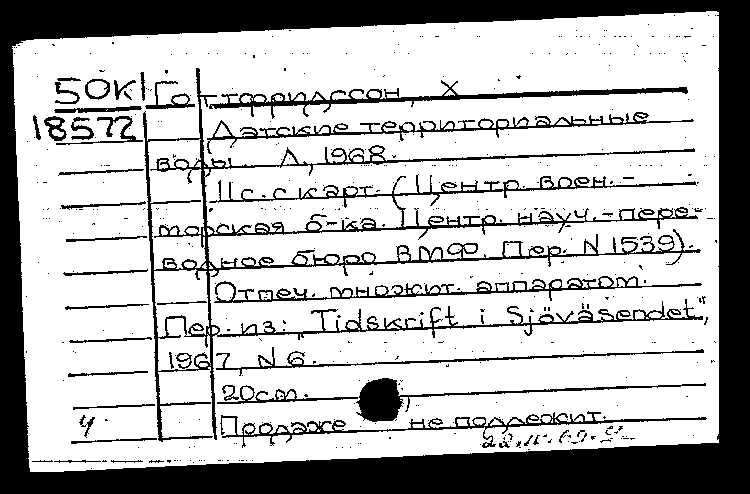 50К Готтфридссон, Х
18572 Датские территориальные
воды. Л., 1968.
11с. с карт. (Центр. воен.-
морская б-ка. Центр. науч.-пере-
водное бюро ВМФ. Пер. N 1539).
Отпеч. множит. аппаратом.
Пер. из: „Tidskrift i Sjöväsendet",
1967, N 6.
20см.
ч Продаже не подлежит.